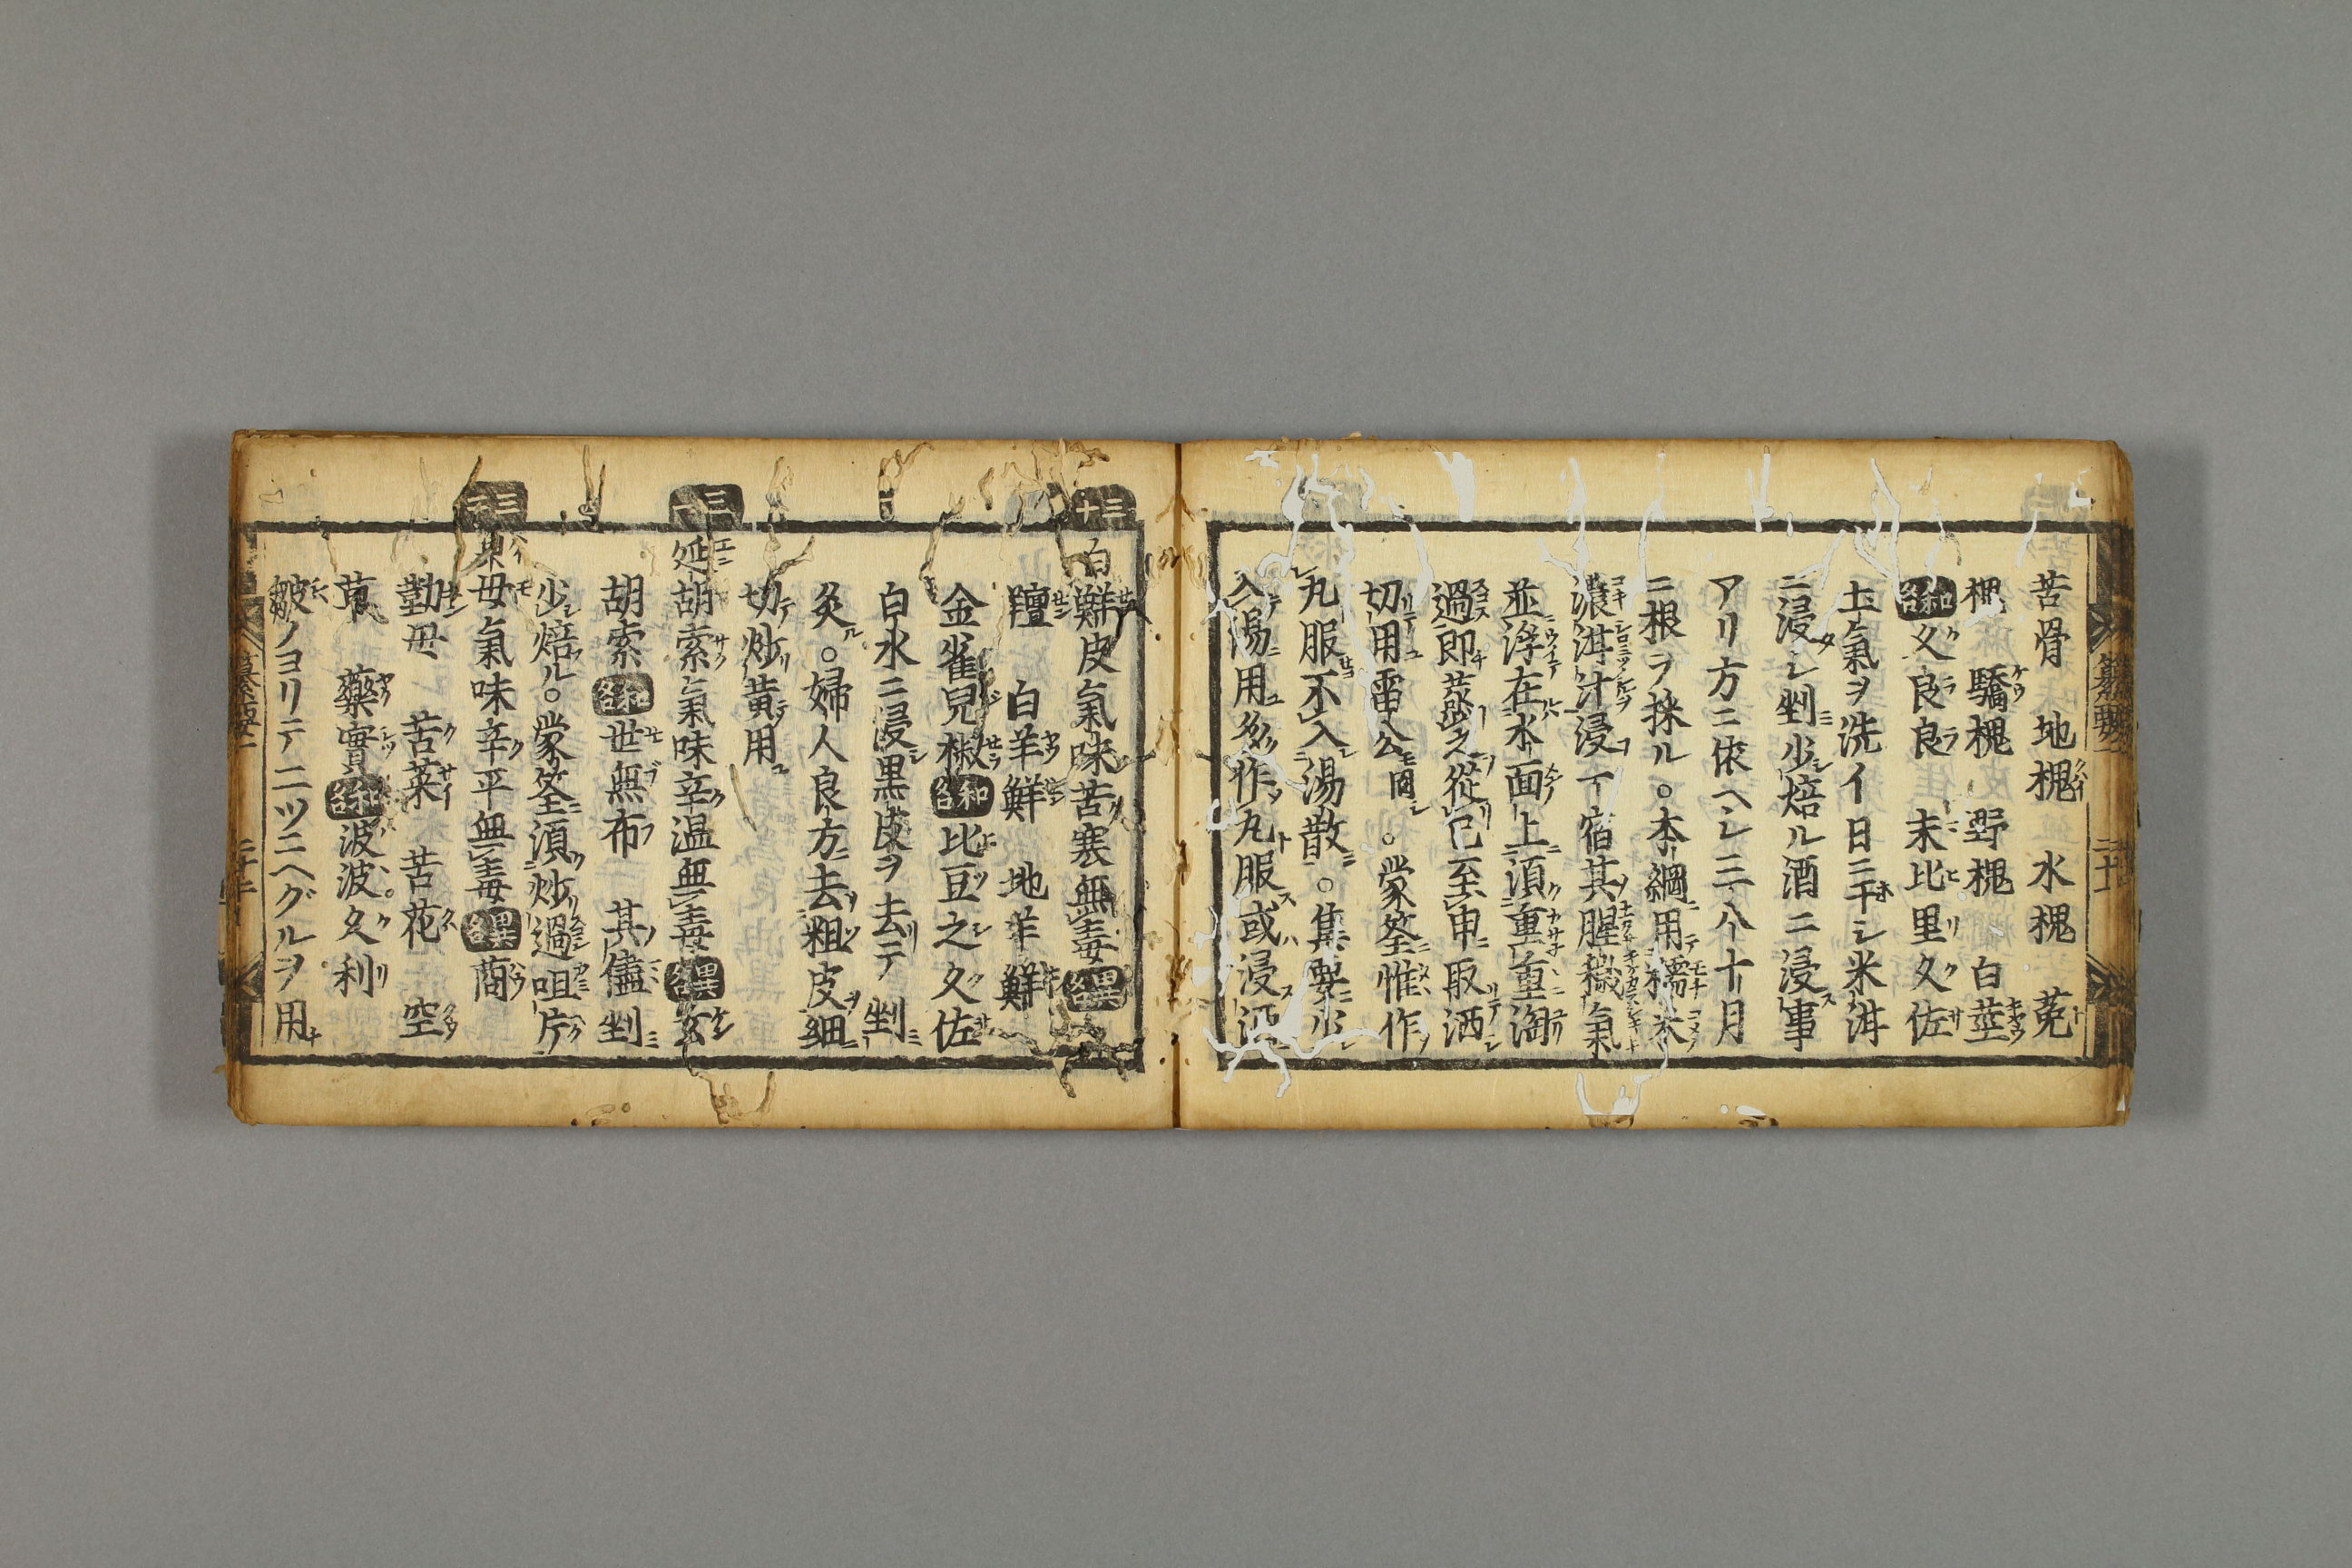 苦骨　地槐　水槐　菟
槐　驕槐　野槐　白莖
和名久良良　末比里久佐
土氣ヲ洗イ日ニ干シ米泔
ニ浸シ剉少焙ル酒ニ浸事
アリ方ニ依ヘシ三八十月
ニ根ヲ採ル。本綱用糯米
濃泔汁浸一宿其腥穢氣
並浮在水面上須重重淘
過即蒸之從巳至申取洒
切用雷公同。蒙筌惟作
丸服不入湯散。集要少
入湯用多作丸服或浸酒
三十
白蘚皮氣味苦寒無毒異名
羶　白羊鮮　地羊鮮
金雀兒椒和名比豆之久佐
白水ニ浸黒皮ヲ去テ剉
灸ル。婦人良方去粗皮細
切炒黄用
三一
延胡索氣味辛温無毒異名玄
胡索和名世無布　其儘剉
少焙ル。蒙筌須炒過咀片
三二
貝母氣味辛平無毒異名商
勤母　苦菜　苦花　空
草　藥實和名波波久利
皺ノヨリテ二ツニヘグルヲ用